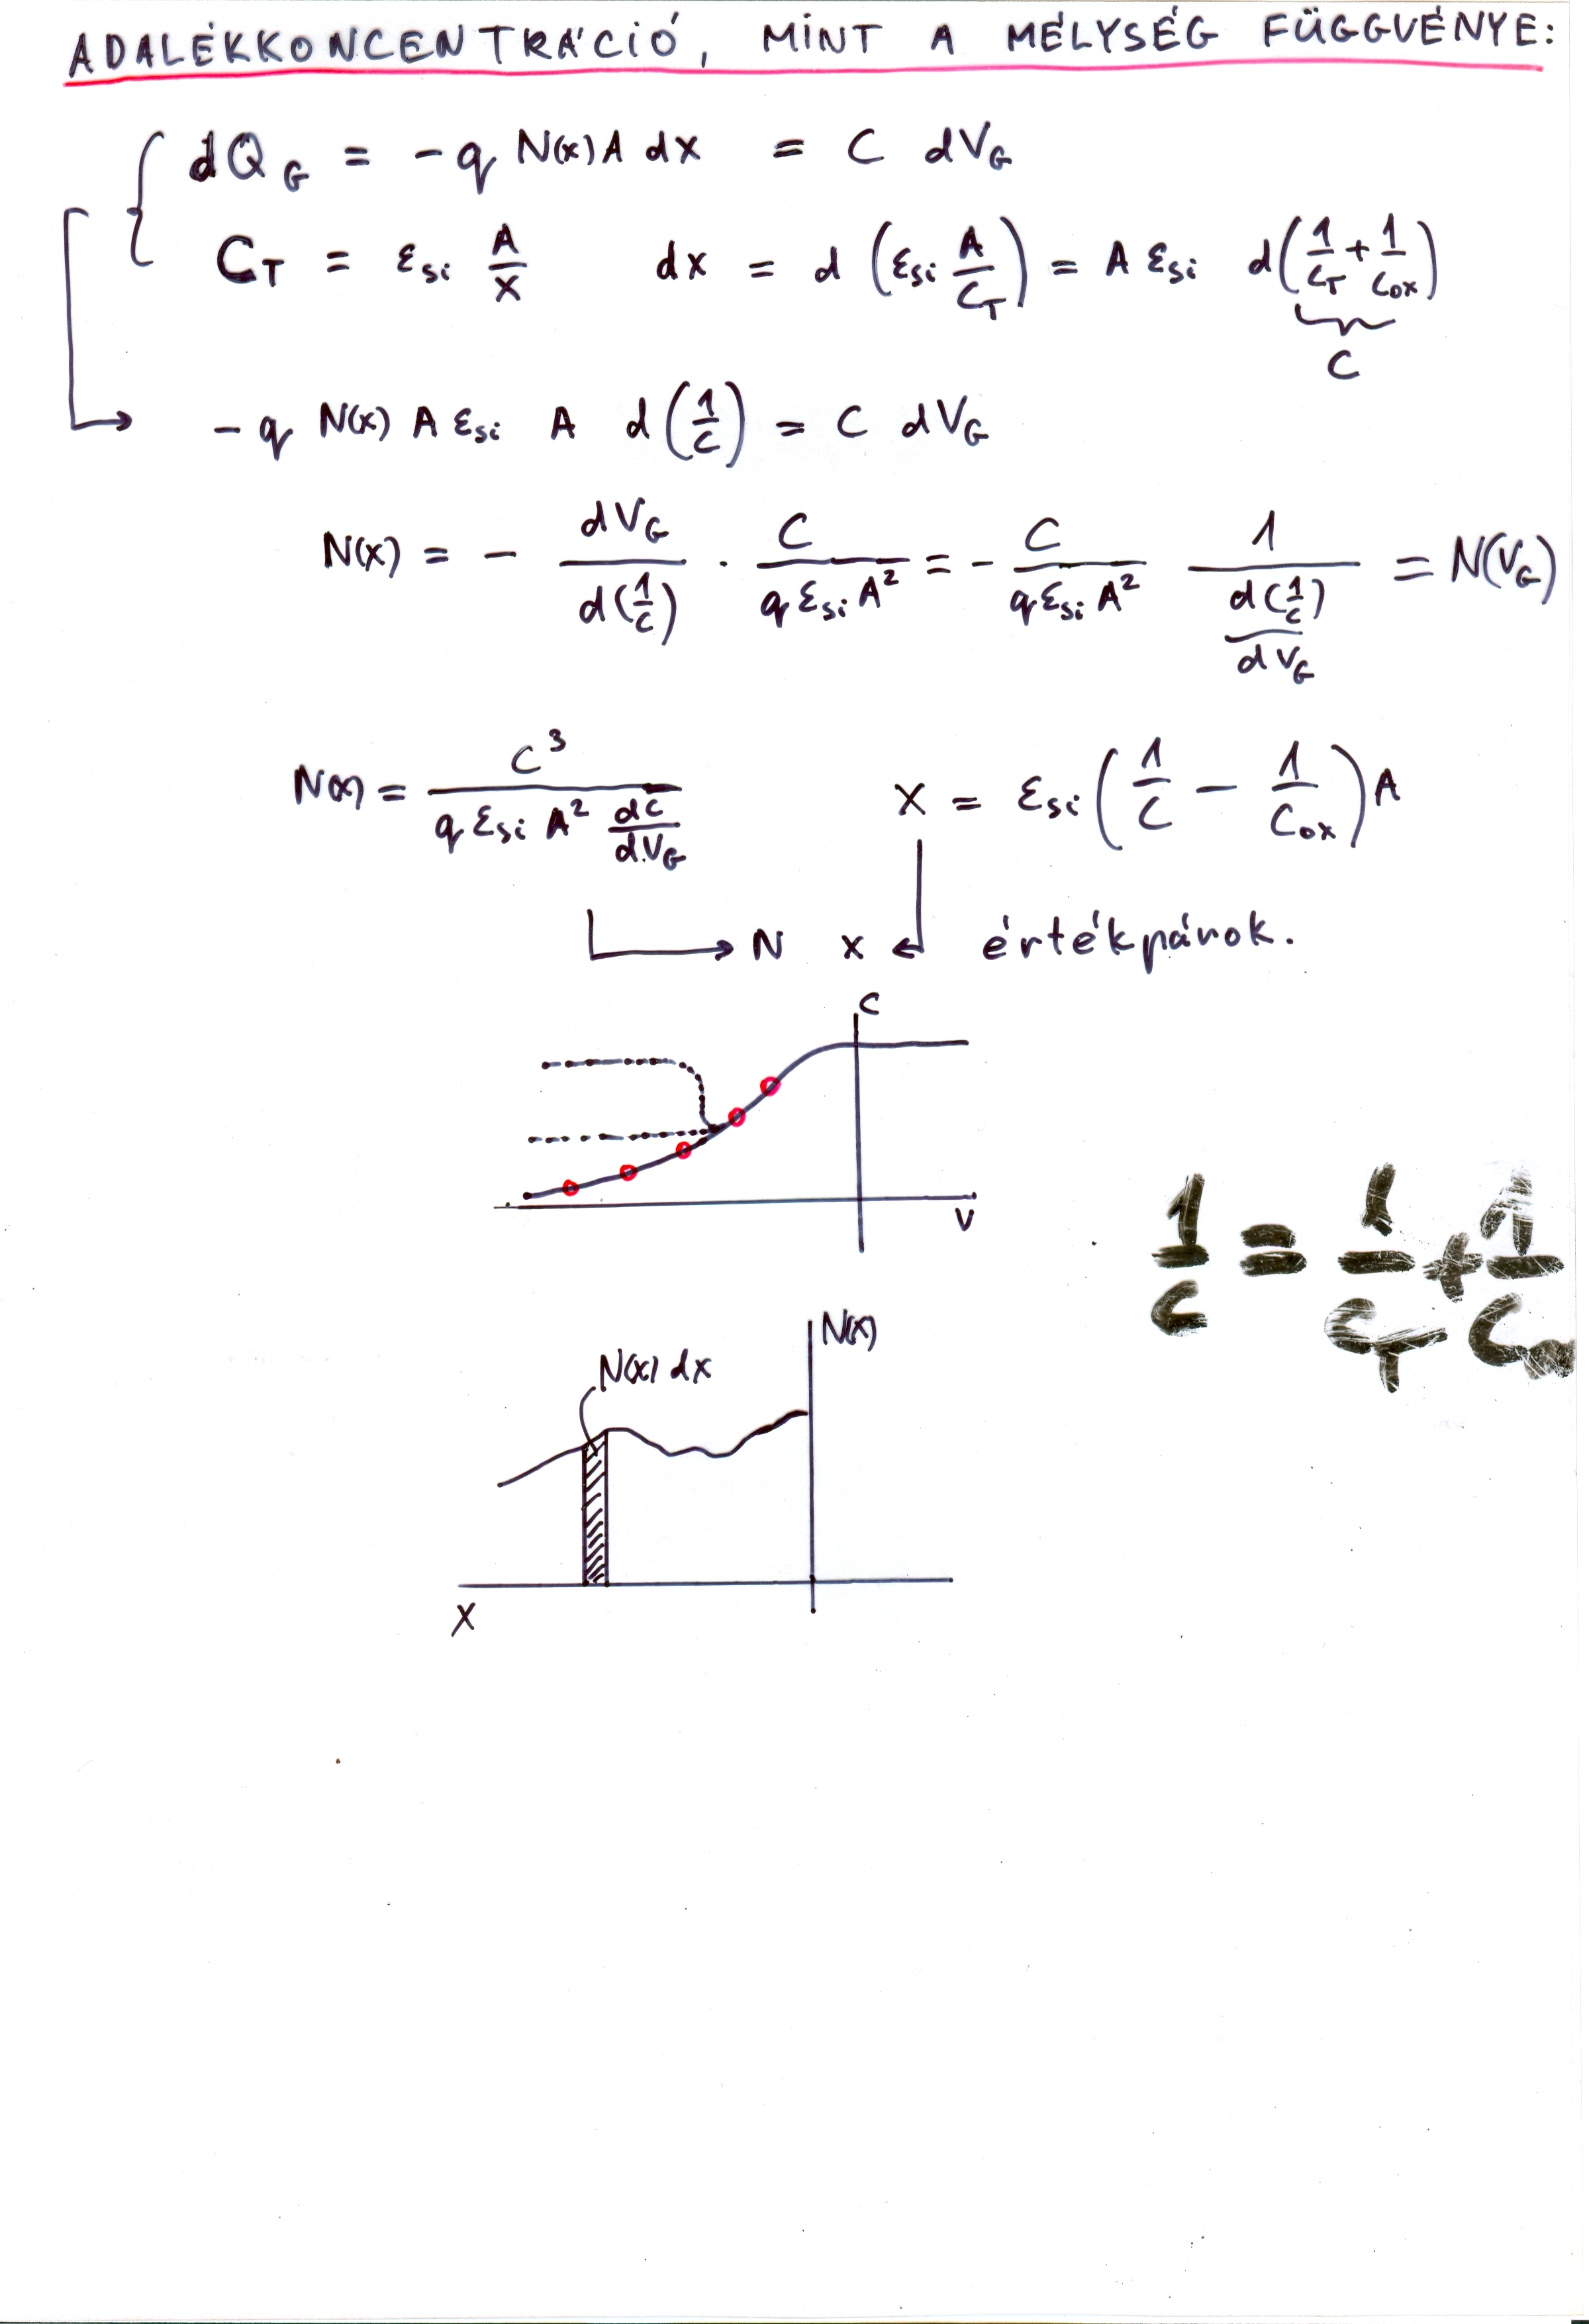 ADALÉKKONCENTRÁCIÓ, MINT A MÉLYSÉG FÜGGVÉNYE:
dQ_G = -q N(x) A dx = C dV_G
C_T = ε_Si A/x   dx = d(ε_Si A/C_T) = A ε_Si d(1/C_T + 1/C_ox)
C
-q N(x) A ε_Si A d(1/C) = C dV_G
N(x) = - dV_G/d(1/C) · C/(q ε_Si A²) = - C/(q ε_Si A²) 1/(d(1/C)/dV_G) = N(V_G)
N(x) = C³/(q ε_Si A² dC/dV_G)   x = ε_Si (1/C - 1/C_ox) A
→ N   x ← értékpárok.
C
V
1/C = 1/C_T + 1/C_ox
N(x)
N(x) dx
X